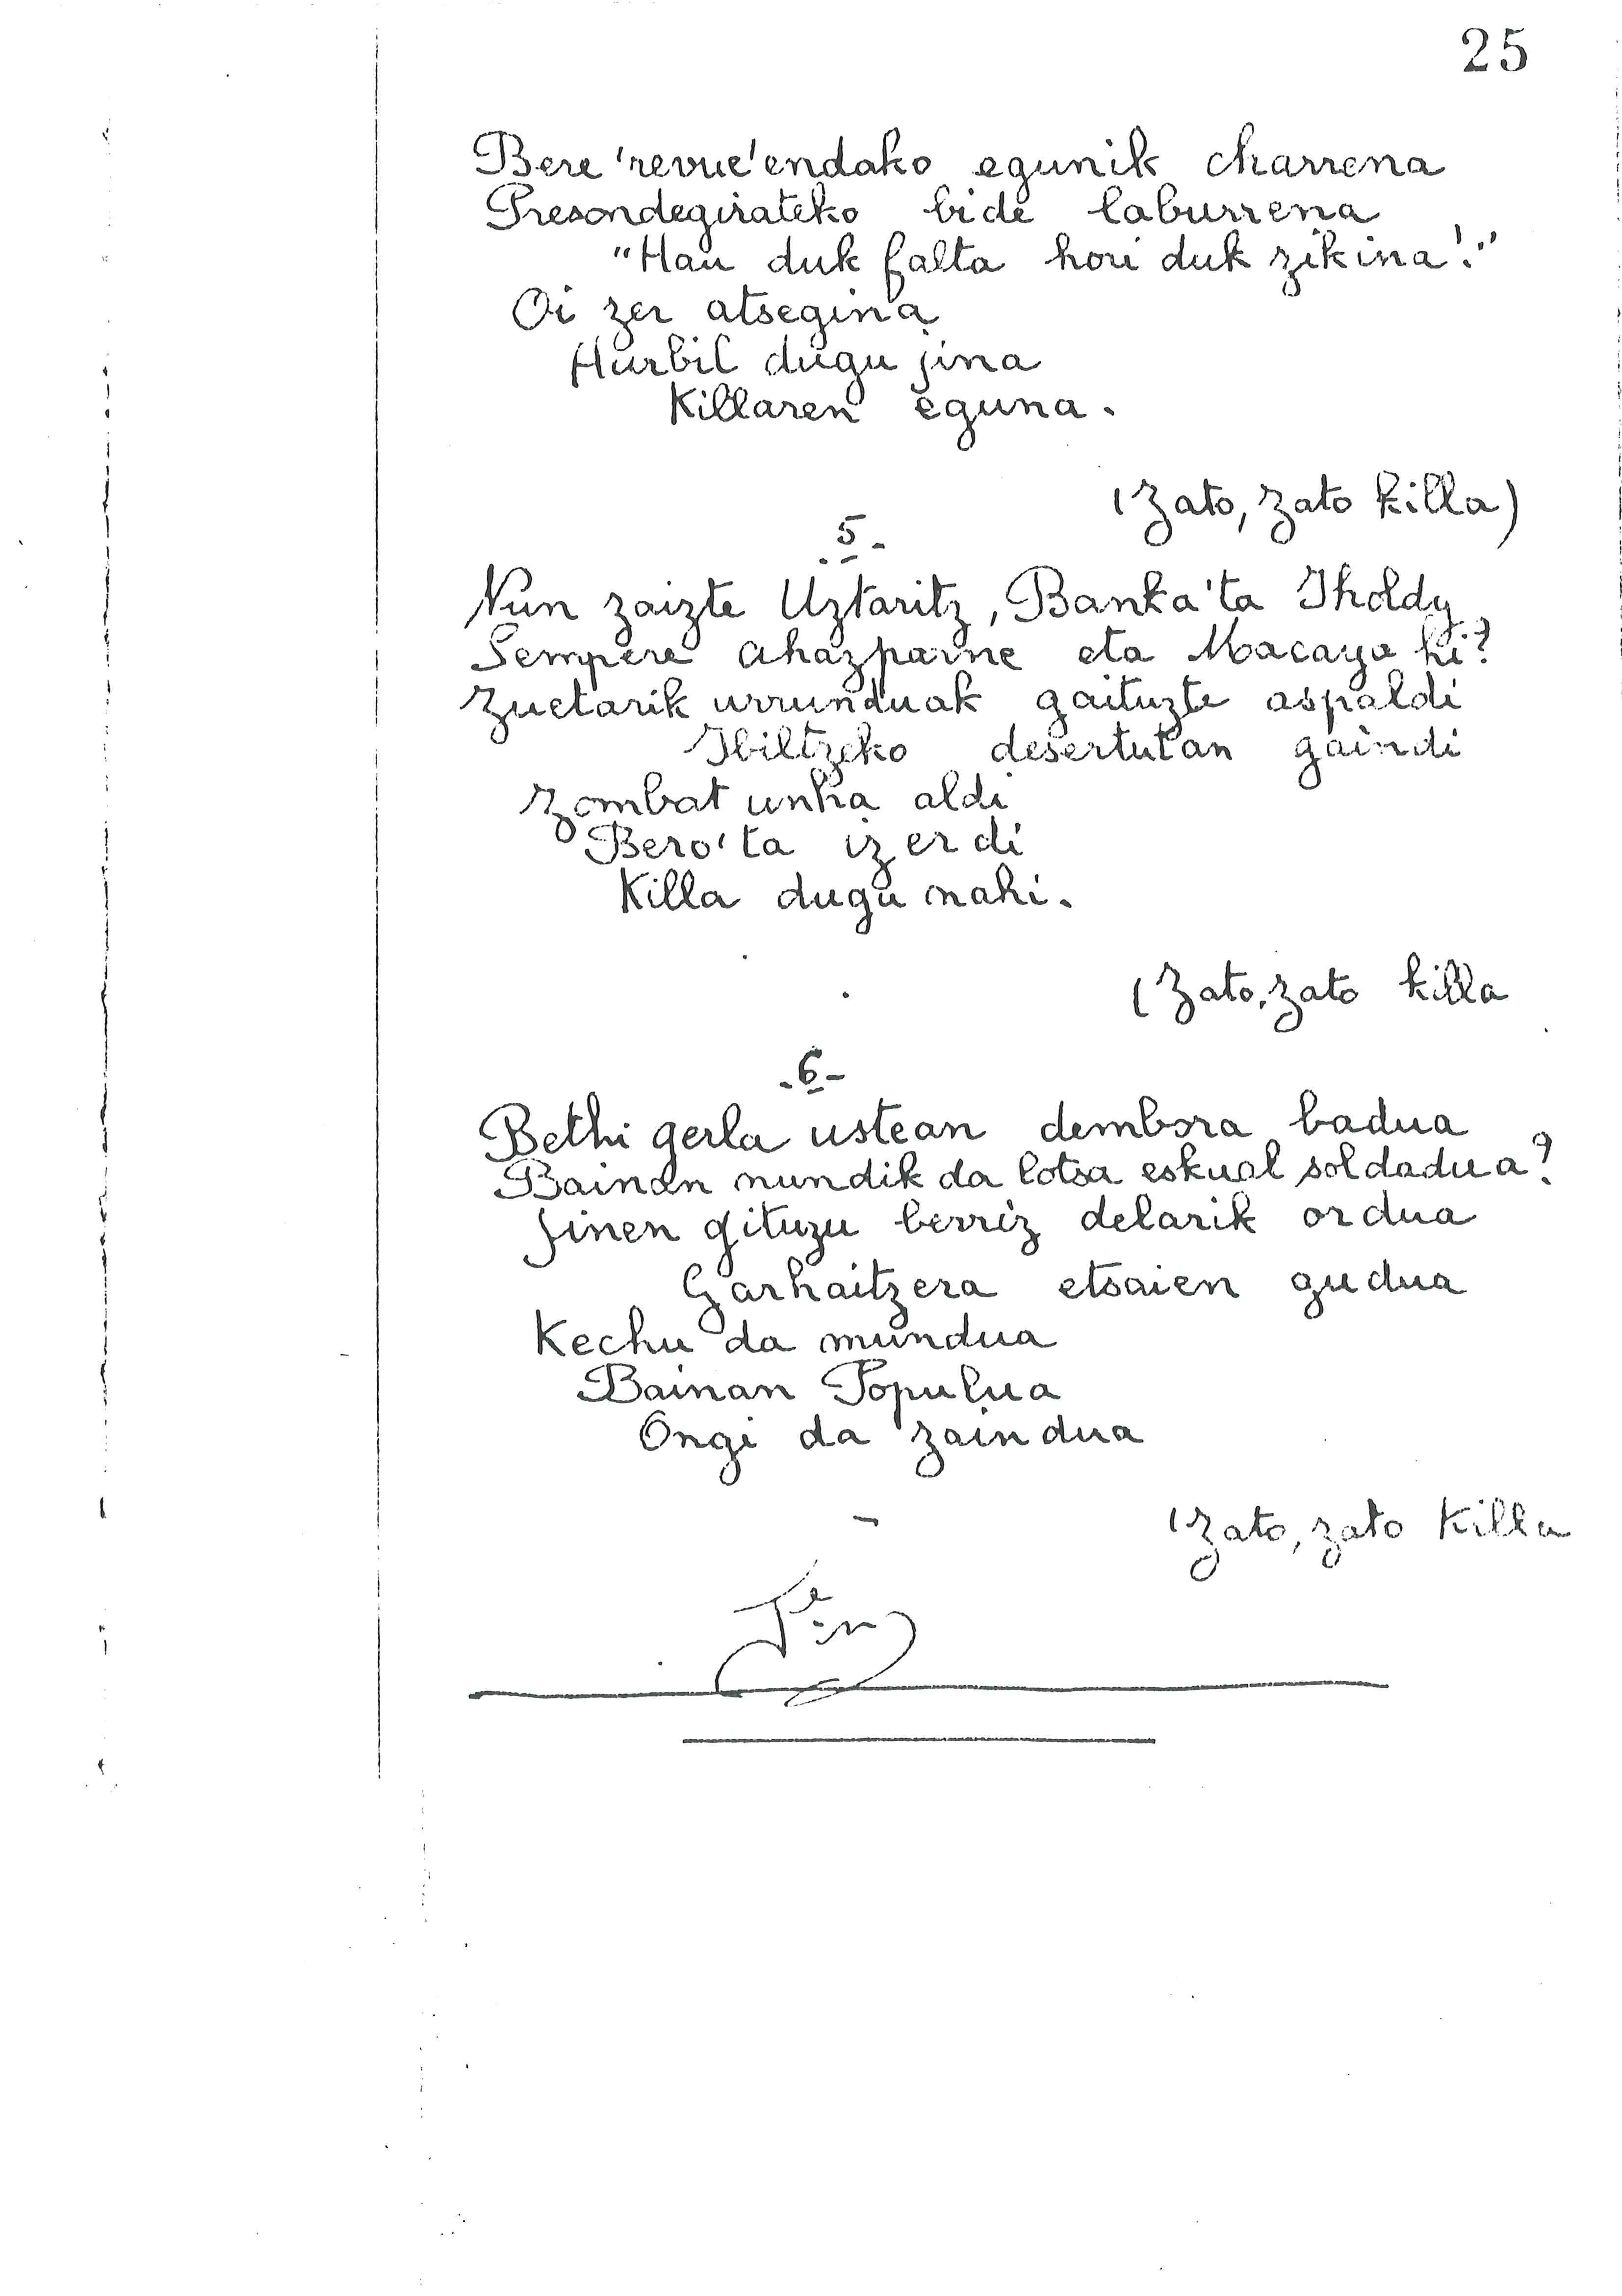 25
Bere 'revue'endako egunik charrena
Presondegirateko bide laburrena
"Hau duk falta hori duk zikina!"
Oi zer atsegina
Hurbil dugu jina
Killaren eguna.
(Zato, zato killa)
.5-
Nun zaizte Uztaritz, Banka'ta Iholdy
Sempere Ahazparne eta Macaya hi?
Zuetarik urrunduak gaituzte aspaldi
Ibiltzeko desertutan gaindi
Zombat unha aldi
Bero'ta izerdi
Killa dugu nahi.
(Zato, zato killa
.6-
Bethi gerla ustean dembora badua
Bainan nundik da lotsa eskual soldadua?
Jinen gituzu berriz delarik ordua
Garhaitzera etsaien gudua
Kechu da mundua
Bainan Populua
Ongi da zaindua
(Zato, zato Killa
Fin